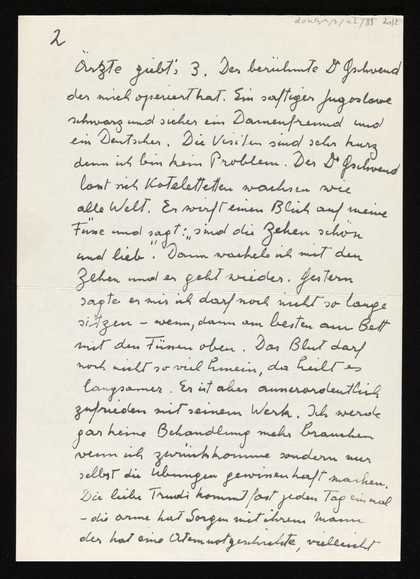 2
Ärzte giebt's 3. Der berühmte Dr Gschwend
der mich operiert hat. Ein saftiger Jugoslawe
schwarz und sicher ein Damenfreund und
ein Deutscher. Die Visiten sind sehr kurz
denn ich bin kein Problem. Der Dr Gschwend
lässt sich Kotelettetten wachsen wie
alle Welt. Er wirft einen Blick auf meine
Füsse und sagt: "sind die Zehen schön
und lieb". Dann wackele ich mit den
Zehen und er geht wieder. Gestern
sagte er mir ich darf noch nicht so lange
sitzen – wenn, dann am besten am Bett
mit den Füssen oben. Das Blut darf
noch nicht so viel hinein, da heilt es
langsamer. Er ist aber ausserordentlich
zufrieden mit seinem Werk. Ich werde
gar keine Behandlung mehr brauchen
wenn ich zurückkomme sondern nur
selbst die Übungen gewissenhaft machen.
Die liebe Trudi kommt fast jeden Tag einmal
– die arme hat Sorgen mit ihrem Mann
der hat eine Atemnotgeschichte, vielleicht